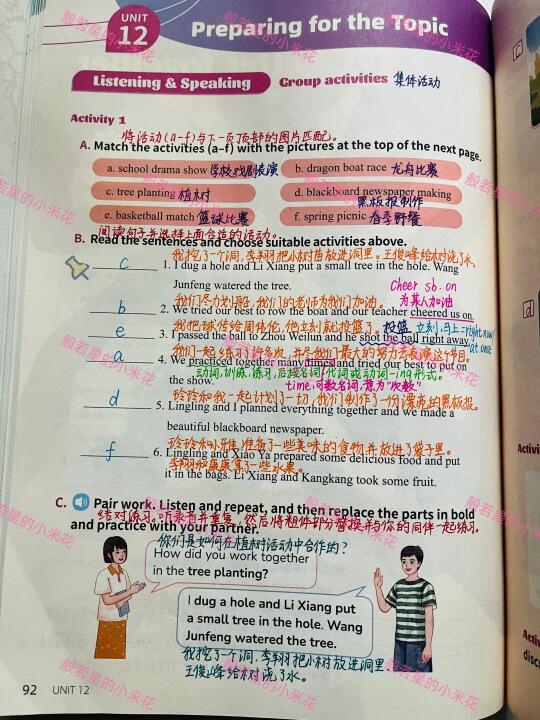 UNIT
12
Preparing for the Topic
Listening & Speaking
Group activities 集体活动
Activity 1
将活动(a-f)与下一页顶部的图片匹配。
A. Match the activities (a–f) with the pictures at the top of the next page.
a. school drama show 学校戏剧表演
b. dragon boat race 龙舟比赛
c. tree planting 植树
d. blackboard newspaper making
黑板报制作
e. basketball match 篮球比赛
f. spring picnic 春季野餐
阅读句子并选择上面合适的活动。
B. Read the sentences and choose suitable activities above.
我挖了个洞,李翔把小树苗放进洞里。王俊峰给树浇了水。
c 1. I dug a hole and Li Xiang put a small tree in the hole. Wang
Junfeng watered the tree.
Cheer sb. on
为某人加油
我们尽力划船,我们的老师为我们加油。
b 2. We tried our best to row the boat and our teacher cheered us on.
我把球传给周伟伦,他立刻就投篮了。投篮 立刻,马上=right now/
at once
e 3. I passed the ball to Zhou Weilun and he shot the ball right away.
我们一起练习了许多次,并尽我们最大的努力去表演这个节目。
a 4. We practiced together many times and tried our best to put on
动词,训练,练习,后接名词/代词或动词-ing形式。
the show.
time,可数名词,意为"次数"
玲玲和我一起计划了一切,我们制作了一份漂亮的黑板报。
d 5. Lingling and I planned everything together and we made a
beautiful blackboard newspaper.
玲玲和小雅准备了一些美味的食物并放进了袋子里。
f 6. Lingling and Xiao Ya prepared some delicious food and put
李翔和康康拿了一些水果。
it in the bags. Li Xiang and Kangkang took some fruit.
C. Pair work. Listen and repeat, and then replace the parts in bold
结对练习。听录音并重复,然后将粗体部分替换并与你的同伴一起练习。
and practice with your partner.
你们是如何在植树活动中合作的?
How did you work together
in the tree planting?
I dug a hole and Li Xiang put
a small tree in the hole. Wang
Junfeng watered the tree.
我挖了一个洞,李翔把小树放进洞里.
王俊峰给树浇了水。
92 UNIT 12
般若星的小米花